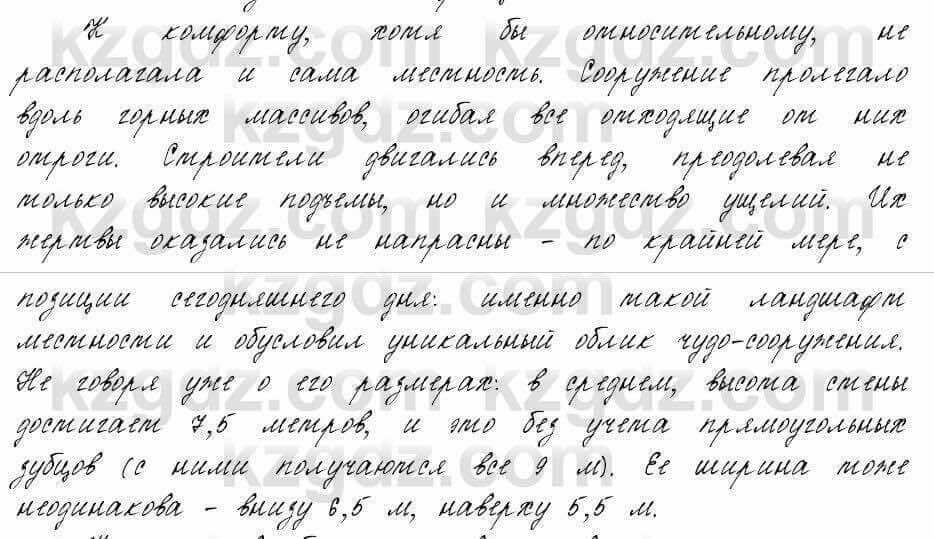 К комфорту, хотя бы относительному, не
располагала и сама местность. Сооружение пролегало
вдоль горных массивов, огибая все отходящие от них
отроги. Строители двигались вперед, преодолевая не
только высокие подъемы, но и множество ущелий. Их
жертвы оказались не напрасны - по крайней мере, с
позиции сегодняшнего дня: именно такой ландшафт
местности и обусловил уникальный облик чудо-сооружения.
Не говоря уже о его размерах: в среднем, высота стены
достигает 7,5 метров, и это без учета прямоугольных
зубцов (с ними получаются все 9 м). Ее ширина тоже
неодинакова - внизу 6,5 м, наверху 5,5 м.